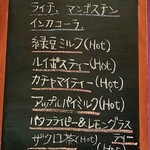 ライチ、マンゴスチン
インカコーラ
緑豆ミルク(Hot)
ルイボスティー(Hot)
カチャマイティー(Hot)
アップルパイミルク(Hot)
バタフライピー&レモングラス
ティー
ザクロ茶(Hot) (Hot)